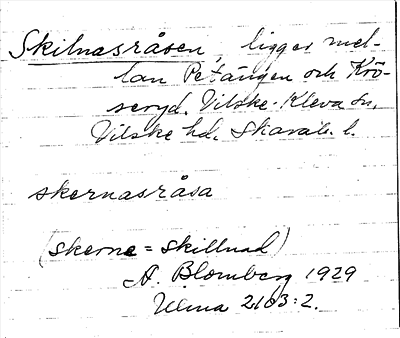 Skilnasråsen, ligger mel-
lan Petängen och Krö-
seryd. Vilske-Kleva sn,
Vilske hd. Skarab. l.
skernasråsa
(skerne = skillnad)
A. Blomberg 1929
Ulma 2103:2.